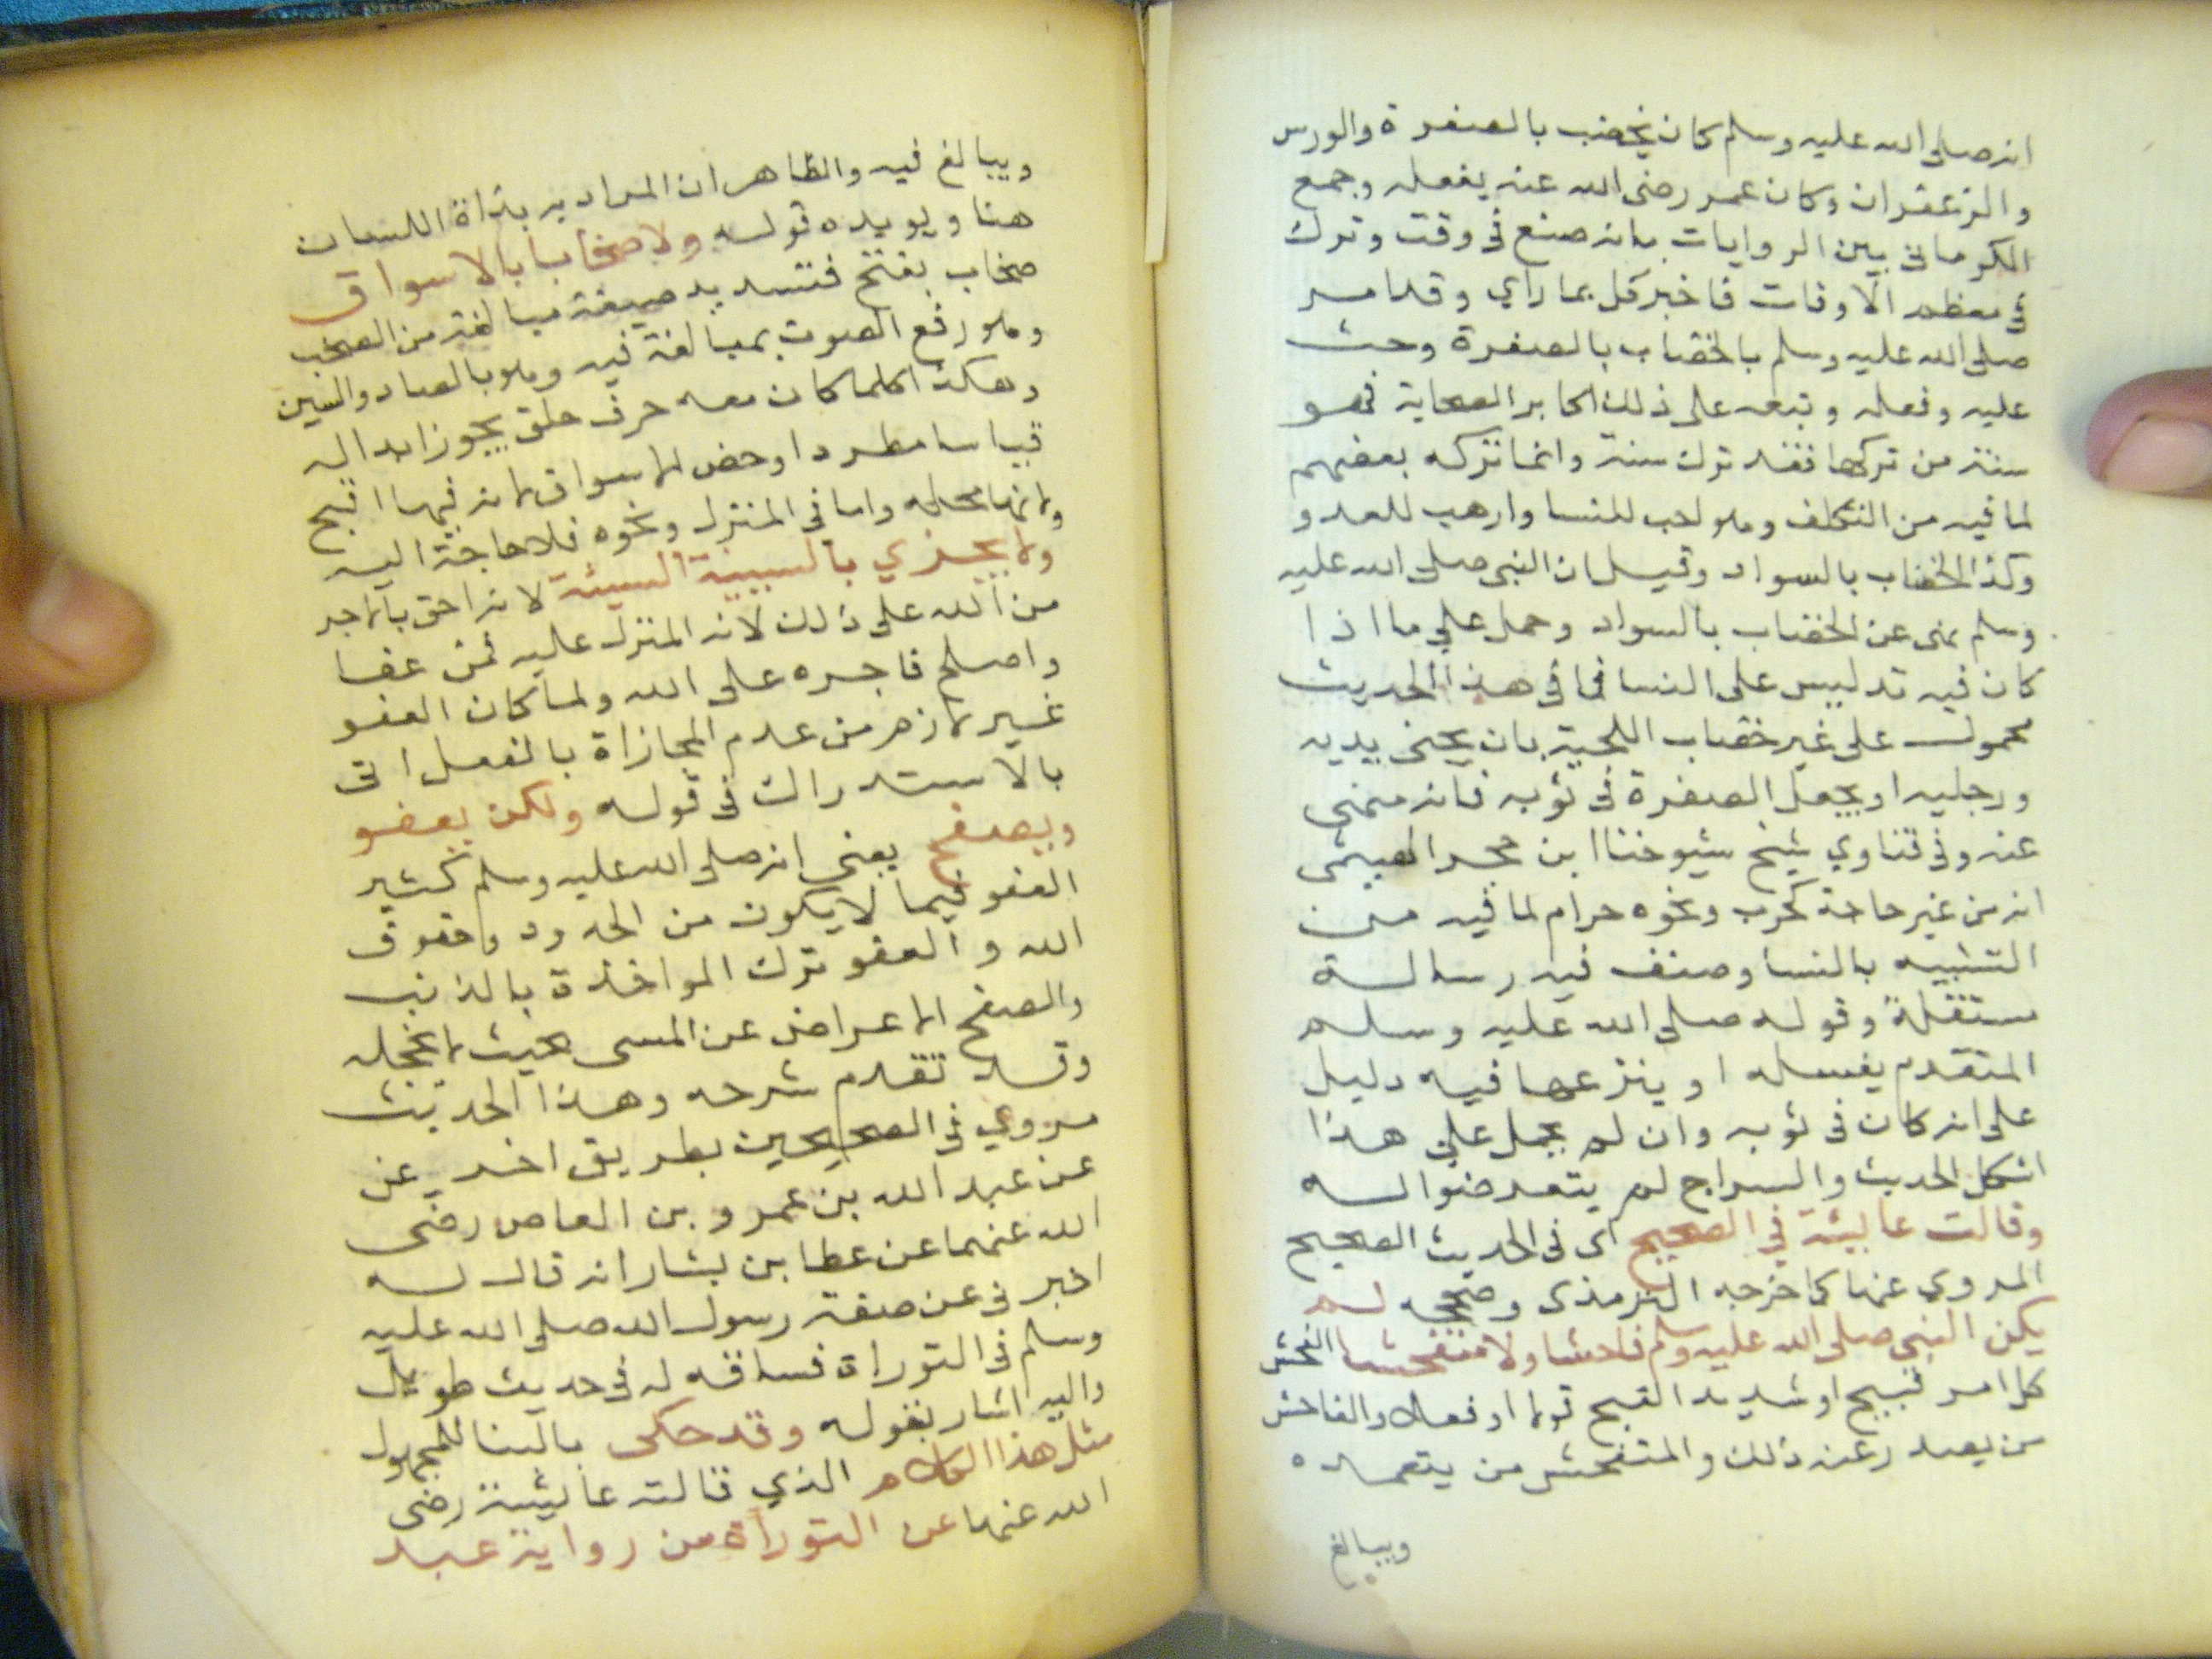 انه صلى الله عليه وسلم كان يخضب بالصفرة والورس
والزعفران وكان عمر رضى الله عنه يفعله وجمع
الكرمانى بين الروايات بانه صبغ فى وقت وترك
فى معظم الاوقات فاخبر كل بما راي وقد امر
صلى الله عليه وسلم بالخضاب بالصفرة وحث
عليه وفعله وتبعه على ذلك اكابر الصحابة فهو
سنة من تركها فقد ترك سنة وانما تركه بعضهم
لما فيه من التكلف وهو احب للنسا وارهب للعدو
وكذا الخضاب بالسواد وقيل ان النبى صلى الله عليه
وسلم نهى عن الخضاب بالسواد وحمل علي ما اذا
كان فيه تدليس على النسا فما فى هذا الحديث
محمول على غير خضاب اللحية بان يحنى يديه
ورجليه او يجعل الصفرة فى ثوبه فانه منهى
عنه وفى فتاوي شيخ شيوخنا ابن حجر الهيثمى
انه من غير حاجة كحرب ونحوه حرام لما فيه من
التشبيه بالنسا وصنف فيه رسالة
مستقلة وقوله صلى الله عليه وسلم
المتقدم يغسله او ينزعها فيه دليل
على انه كان فى ثوبه وان لم يحمل علي هذا
اشكل الحديث والسراج لم يتعرضوا له
وقالت عايشة في الصحيح اى فى الحديث الصحيح
المروي عنها كما خرجه الترمذى وصححه لم
يكن النبى صلى الله عليه وسلم فاحشا ولا متفحشا الفحش
كل امر قبيح او شديد القبح قولا او فعلا والفاحش
من يصدر عنه ذلك والمتفحش من يتعمده
ويبالغ
ويبالغ فيه والظاهر ان المراد به بذاة اللسان
هنا ويويده قوله ولا صخابا بالاسواق
صخاب بفتح فتشديد صيغة مبالغة من الصخب
وهو رفع الصوت بمبالغة فيه وهو بالصاد والسين
وهكذا كلما كان معه حرف حلق يجوز ابداله
قياسا مطردا وخص الاسواق لانه فيها اقبح
ولانها محله واما فى المنزل ونحوه فلا حاجة اليه
ولا يجزي بالسيية السيئة لانه احق بالاجر
من الله على ذلك لانه المنزل عليه فمن عفا
واصلح فاجره على الله ولما كان العفو
غير لازم من عدم المجازاة بالفعل اتى
بالاستدراك فى قوله ولكن يعفو
ويصفح يعنى انه صلى الله عليه وسلم كثير
العفو فيما لا يكون من الحدود وحقوق
الله والعفو ترك المواخذة بالذنب
والصفح الاعراض عن المسى بحيث لا يخجله
وقد تقدم شرحه وهذا الحديث
مروي فى الصحيحين بطريق اخر عن
عن عبد الله بن عمرو بن العاص رضى
الله عنهما عن عطا بن بشار انه قال له
اخبرنى عن صفة رسول الله صلى الله عليه
وسلم فى التوراة فساقه له فى حديث طويل
واليه اشار بقوله وقد حكى بالبنا للمجهول
مثل هذا الكلام الذي قالته عايشة رضى
الله عنها عن التوراة من رواية عبد